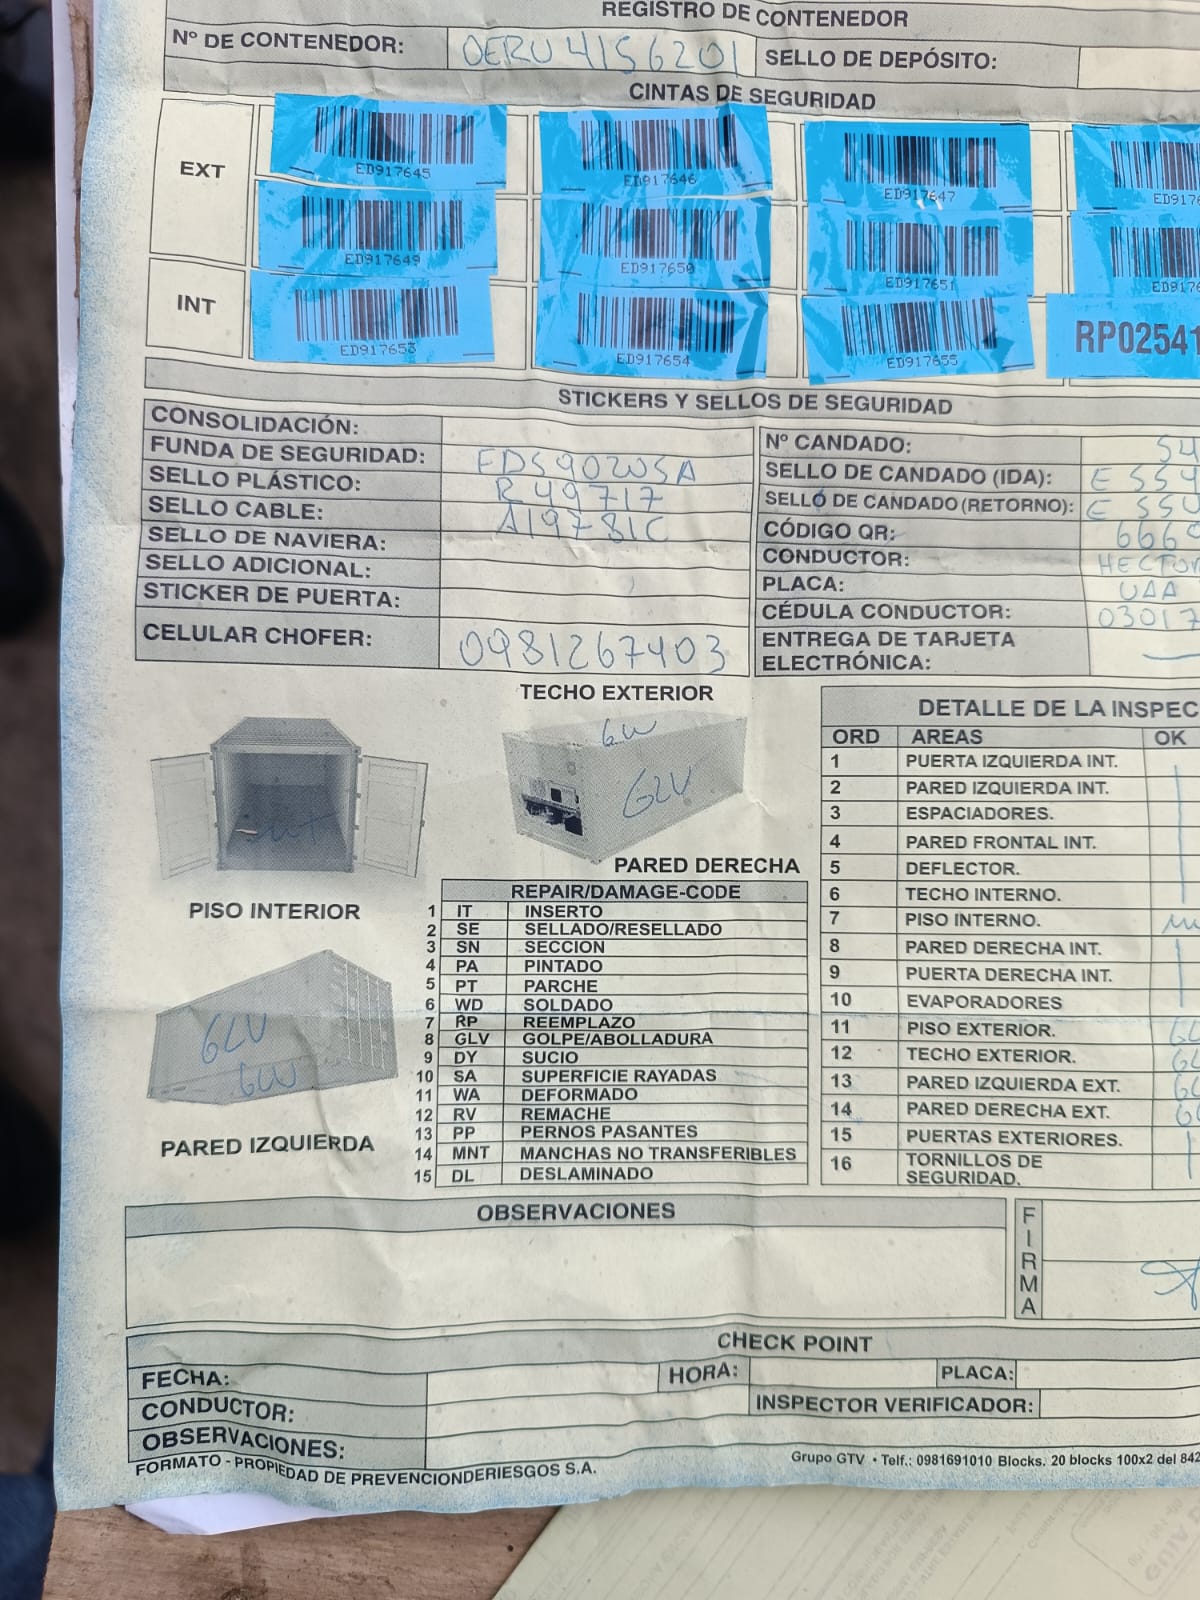 REGISTRO DE CONTENEDOR
Nº DE CONTENEDOR: OERU 4156201 SELLO DE DEPÓSITO:
CINTAS DE SEGURIDAD
EXT
ED917645 ED917646 ED917647 ED9176
ED917649 ED917650 ED917651 ED9176
INT
ED917653 ED917654 ED917655 RP02541
STICKERS Y SELLOS DE SEGURIDAD
CONSOLIDACIÓN: Nº CANDADO: 54
FUNDA DE SEGURIDAD: EDS90205A SELLO DE CANDADO (IDA): E 554
SELLO PLÁSTICO: R49717 SELLO DE CANDADO (RETORNO): E 554
SELLO CABLE: A19781C CÓDIGO QR: 6669
SELLO DE NAVIERA: CONDUCTOR: HECTOR
SELLO ADICIONAL: PLACA: UAA
STICKER DE PUERTA: CÉDULA CONDUCTOR: 03017
CELULAR CHOFER: 0981267403 ENTREGA DE TARJETA ELECTRÓNICA:
TECHO EXTERIOR
GLV
GLV
PARED DERECHA
MNT
PISO INTERIOR
GLV
GLV
PARED IZQUIERDA
REPAIR/DAMAGE-CODE
1 IT INSERTO
2 SE SELLADO/RESELLADO
3 SN SECCION
4 PA PINTADO
5 PT PARCHE
6 WD SOLDADO
7 RP REEMPLAZO
8 GLV GOLPE/ABOLLADURA
9 DY SUCIO
10 SA SUPERFICIE RAYADAS
11 WA DEFORMADO
12 RV REMACHE
13 PP PERNOS PASANTES
14 MNT MANCHAS NO TRANSFERIBLES
15 DL DESLAMINADO
DETALLE DE LA INSPEC
ORD AREAS OK
1 PUERTA IZQUIERDA INT.
2 PARED IZQUIERDA INT.
3 ESPACIADORES.
4 PARED FRONTAL INT.
5 DEFLECTOR.
6 TECHO INTERNO.
7 PISO INTERNO.
8 PARED DERECHA INT.
9 PUERTA DERECHA INT.
10 EVAPORADORES
11 PISO EXTERIOR.
12 TECHO EXTERIOR.
13 PARED IZQUIERDA EXT.
14 PARED DERECHA EXT.
15 PUERTAS EXTERIORES.
16 TORNILLOS DE SEGURIDAD.
OBSERVACIONES
FIRMA
CHECK POINT
FECHA: HORA: PLACA:
CONDUCTOR: INSPECTOR VERIFICADOR:
OBSERVACIONES:
FORMATO - PROPIEDAD DE PREVENCIONDERIESGOS S.A.
Grupo GTV • Telf.: 0981691010 Blocks. 20 blocks 100x2 del 842